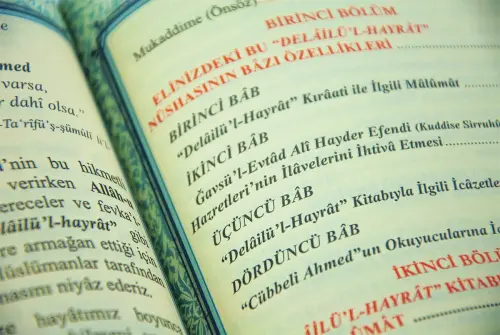 med
varsa,
r dahî olsa."
-Ta'rîfü'ş-şümûli
i'nin bu hikmetli
verirken Allâh-u
ereceler ve fevka'l-
lâilü'l-hayrât" gibi
re armağan ettiği için
Müslümanlar tarafından
masını niyâz ederiz.
hayâtımız boyunca
Mukaddime (Önsöz)
BİRİNCİ BÖLÜM
ELİNİZDEKİ BU "DELÂİLÜ'L-HAYRÂT"
NÜSHASININ BÂZI ÖZELLİKLERİ
BİRİNCİ BÂB
"Delâilü'l-Hayrât" Kırâati ile İlgili Mâlûmât
İKİNCİ BÂB
Ğavsü'l-Evtâd Alî Hayder Efendi (Kuddise Sirruhû
Hazretleri'nin İlâvelerini İhtivâ Etmesi
ÜÇÜNCÜ BÂB
"Delâilü'l-Hayrât" Kitabıyla İlgili İcâzetler
DÖRDÜNCÜ BÂB
"Cübbeli Ahmed"un Okuyucularına İc
İKİNCİ BÖLÜ
LÂİLÜ'L-HAYRÂT" KİTABI
ÛMÂT